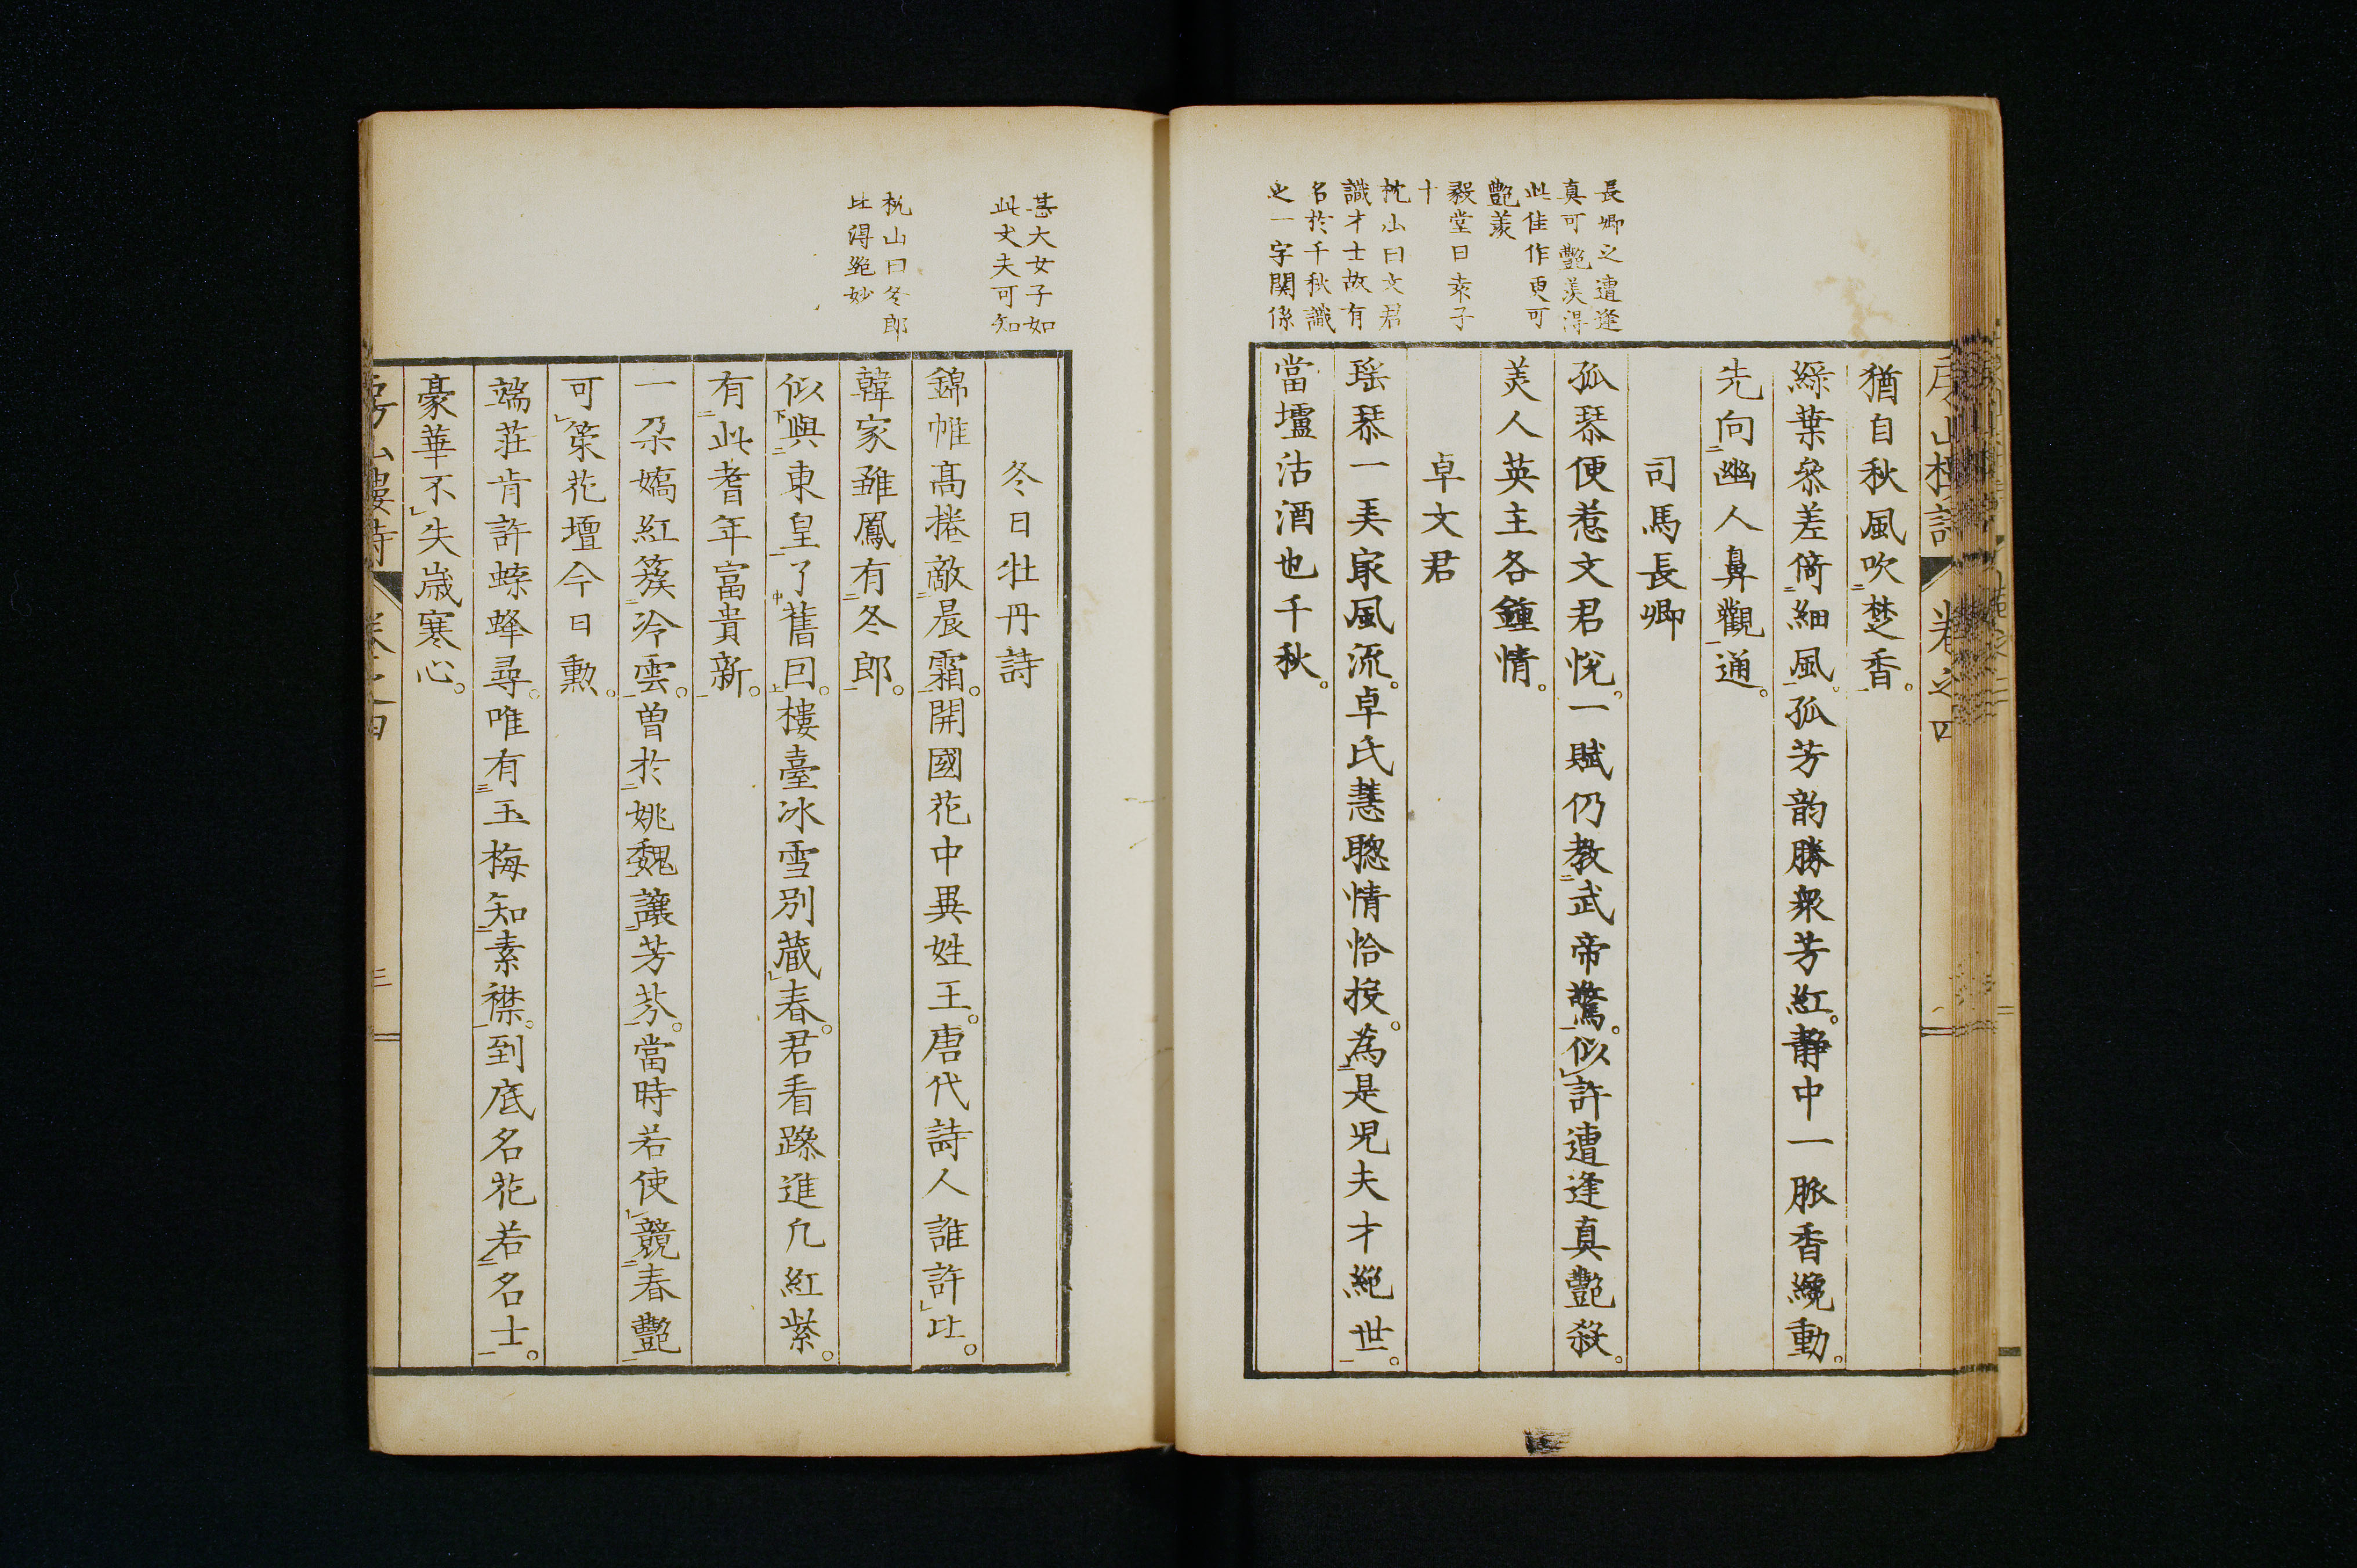 長卿之遭逢
真可艷羨得
此佳作更可
艷羨
毅堂曰素子
十
枕山曰文君
識才士故有
名於千秋識
之一字関係
猶自秋風吹楚香
緑葉參差倚細風孤芳韵勝衆芳紅静中一脈香纔動
先向幽人鼻観通
司馬長卿
孤琴便惹文君悅一賦仍教武帝驚似許遭逢真艷殺
美人英主各鍾情
卓文君
瑶琴一弄寂風流卓氏慧聰情恰投為是児夫才絕世
當壚沽酒也千秋
甚大女子如
此丈夫可知
枕山曰冬郎
比得絕妙
冬日牡丹詩
錦帷高捲敵晨霜開國花中異姓王唐代詩人誰許比
韓家雛鳳有冬郎
似與東皇了舊因樓臺冰雪別蔵春君看躁進凡紅紫
有此耆年富貴新
一朶嬌紅簇冷雲曽於姚魏讓芳芬當時若使競春艷
可策花壇今日勲
端荘肯許蝶蜂尋唯有玉梅知素襟到底名花若名士
豪華不失歳寒心